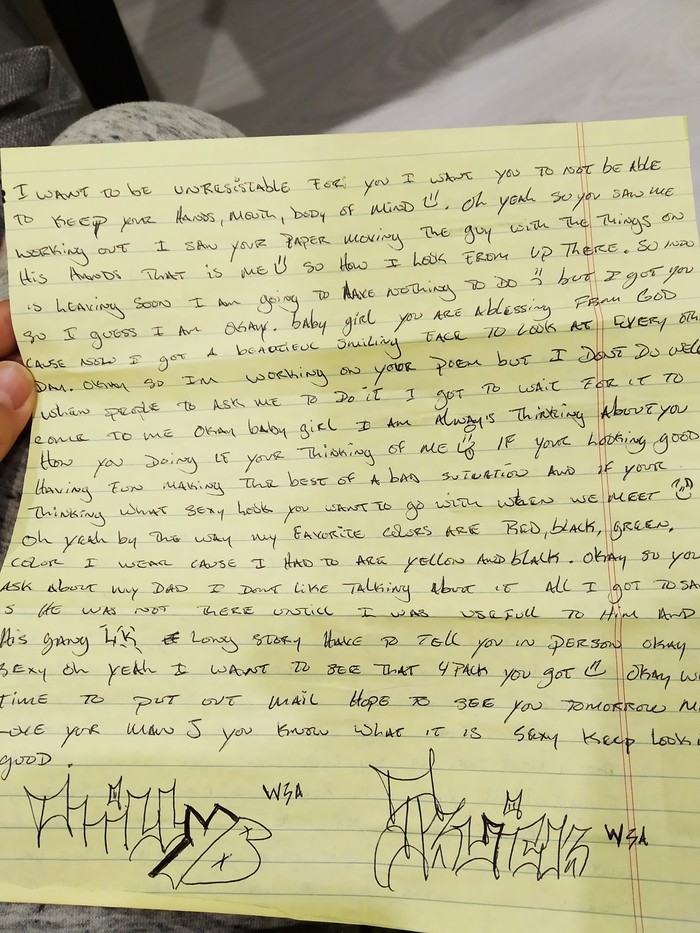 I WANT TO BE UNRESISTABLE FOR YOU I WANT YOU TO NOT BE ABLE
TO KEEP YOUR HANDS, MOUTH, BODY OF MIND. Oh YEAH SO YOU SAW ME
WORKING OUT I SAW YOUR PAPER MOVING THE GUY WITH THE THINGS ON
HIS HANDS THAT IS ME SO HOW I LOOK FROM UP THERE. SO
IS LEAVING SOON I AM GOING TO HAVE NOTHING TO DO BUT I GOT YOU
SO I GUESS I AM OKAY. BABY GIRL YOU ARE A BLESSING FROM GOD
CAUSE NOW I GOT A BEAUTIFUL SMILING FACE TO LOOK AT EVERY OTH
DAY. OKAY SO IM WORKING ON YOUR POEM BUT I DONT DO WELL
WHEN PEOPLE TO ASK ME TO DO IT I GOT TO WAIT FOR IT TO
COME TO ME OKAY BABY GIRL I AM ALWAYS THINKING ABOUT YOU
HOW YOU DOING IF YOUR THINKING OF ME IF YOUR LOOKING GOOD
HAVING FUN MAKING THE BEST OF A BAD SITUATION AND IF YOUR
THINKING WHAT SEXY LOOK YOU WANT TO GO WITH WHEN WE MEET
Oh YEAH BY THE WAY MY FAVORITE COLORS ARE RED, BLACK, GREEN.
COLOR I WEAR CAUSE I HAD TO ARE YELLOW AND BLACK. OKAY SO YOU
ASK ABOUT MY DAD I DONT LIKE TALKING ABOUT IT ALL I GOT TO SA
S HE WAS NOT THERE UNTILL I WAS USEFULL TO HIM AND
HIS GANG LK LONG STORY HAVE TO TELL YOU IN PERSON OKAY
SEXY Oh YEAH I WANT TO SEE THAT 4 PACK YOU GOT OKAY W
TIME TO PUT OUT MAIL HOPE TO SEE YOU TOMORROW M
LOVE YOR MAN J YOU KNOW WHAT IT IS SEXY KEEP LOOKI
GOOD.
WSA
WSA